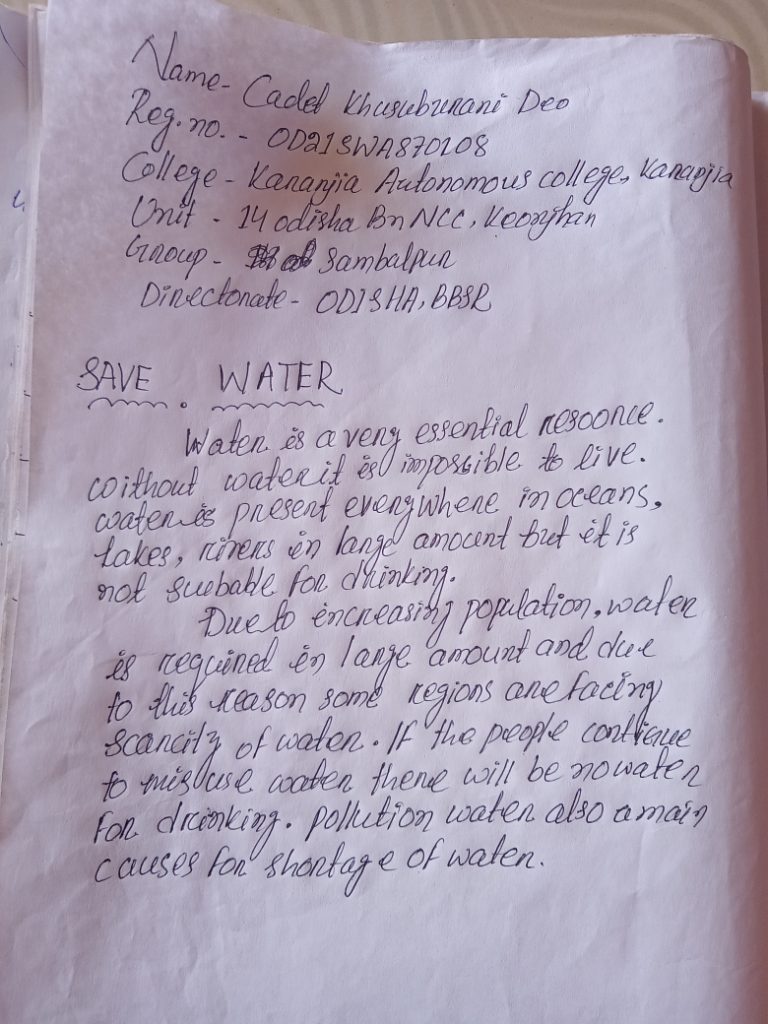 Name- Cadet Khusuburani Deo
Reg. no. - OD21SWA870108
College - Karanjia Autonomous college, Karanjia
Unit - 14 odisha Bn NCC, Keonjhar
Group - Sambalpur
Directorate - ODISHA, BBSR
SAVE . WATER
Water is a very essential resoorce.
Without water it is impossible to live.
water is present everywhere in oceans,
lakes, rivers in large amount but it is
not suebable for drinking.
Due to increasing population, water
is required in large amount and due
to this reason some regions are facing
scarcity of water. If the people contienue
to misuse water there will be no water
for drinking. pollution water also a main
causes for shortage of water.